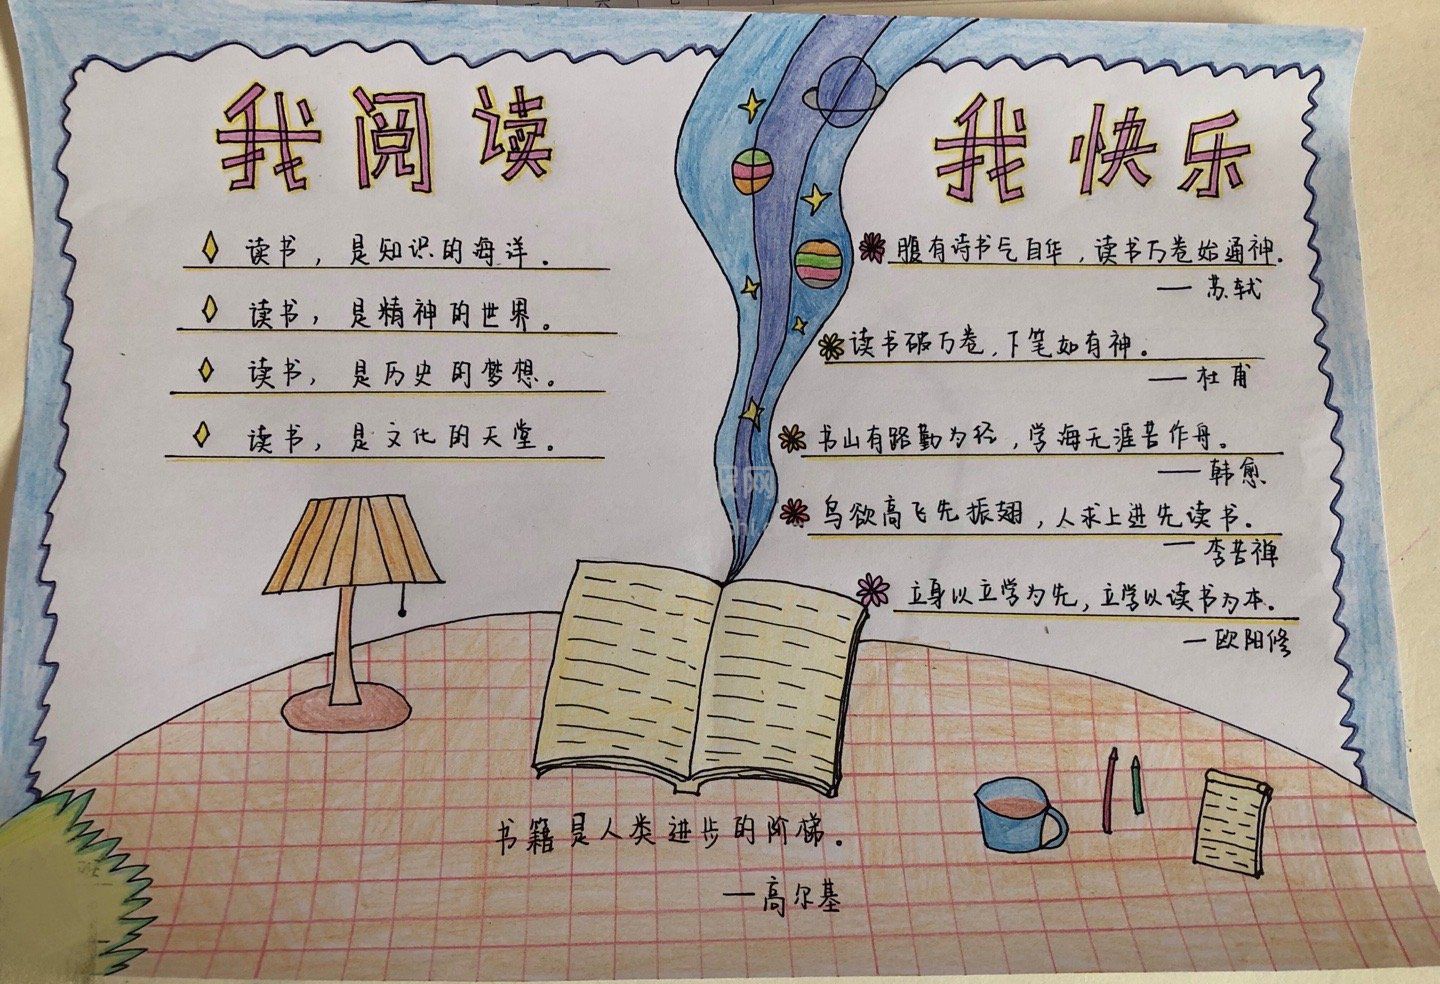 我阅读
读书，是知识的海洋。
读书，是精神的世界。
读书，是历史的梦想。
读书，是文化的天堂。
我快乐
腹有诗书气自华，读书万卷始通神.
— 苏轼
读书破万卷，下笔如有神。
— 杜甫
书山有路勤为径，学海无涯苦作舟。
— 韩愈
鸟欲高飞先振翅，人求上进先读书。
— 李苦禅
立身以立学为先，立学以读书为本.
— 欧阳修
书籍是人类进步的阶梯。
— 高尔基